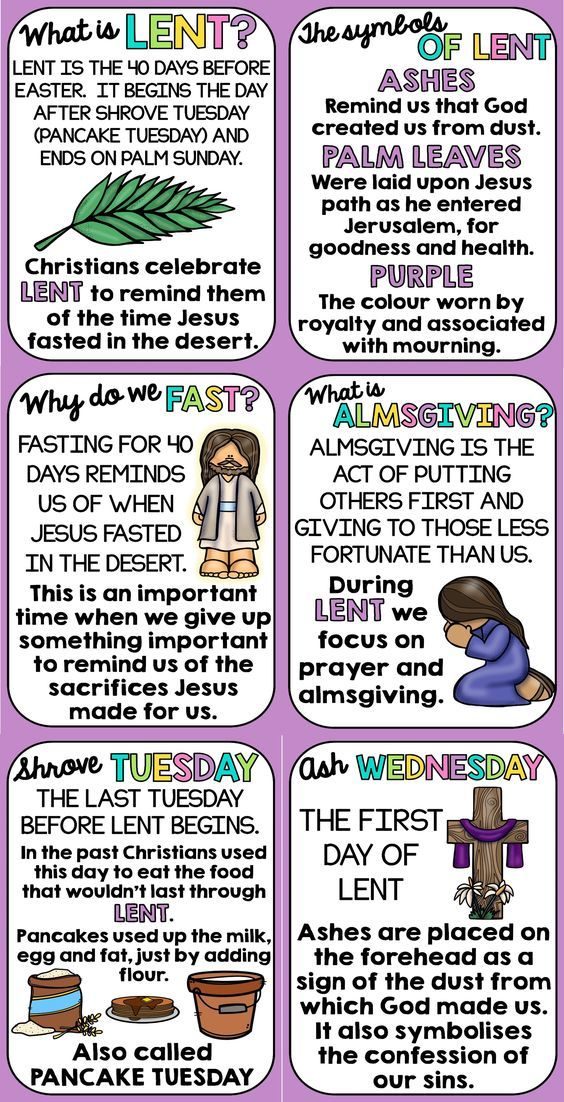 What is LENT?
LENT IS THE 40 DAYS BEFORE
EASTER. IT BEGINS THE DAY
AFTER SHROVE TUESDAY
(PANCAKE TUESDAY) AND
ENDS ON PALM SUNDAY.
Christians celebrate
LENT to remind them
of the time Jesus
fasted in the desert.
The symbols
OF LENT
ASHES
Remind us that God
created us from dust.
PALM LEAVES
Were laid upon Jesus
path as he entered
Jerusalem, for
goodness and health.
PURPLE
The colour worn by
royalty and associated
with mourning.
Why do we FAST?
FASTING FOR 40
DAYS REMINDS
US OF WHEN
JESUS FASTED
IN THE DESERT.
This is an important
time when we give up
something important
to remind us of the
sacrifices Jesus
made for us.
What is
ALMSGIVING?
ALMSGIVING IS THE
ACT OF PUTTING
OTHERS FIRST AND
GIVING TO THOSE LESS
FORTUNATE THAN US.
During
LENT we
focus on
prayer and
almsgiving.
Shrove TUESDAY
THE LAST TUESDAY
BEFORE LENT BEGINS.
In the past Christians used
this day to eat the food
that wouldn't last through
LENT.
Pancakes used up the milk,
egg and fat, just by adding
flour.
Also called
PANCAKE TUESDAY
Ash WEDNESDAY
THE FIRST
DAY OF
LENT
Ashes are placed on
the forehead as a
sign of the dust from
which God made us.
It also symbolises
the confession of
our sins.